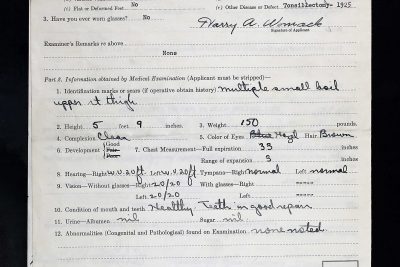 (c) Flat or Deformed Feet No (c) Other Disease or Defect. Tonsillectomy- 1925
3. Have you ever worn glasses? No
Harry A. Womack
Signature of Applicant
Examiner's Remarks re above
None
Part 2. Information obtained by Medical Examination (Applicant must be stripped)—
1. Identification marks or scars (if operative obtain history) multiple small boil
upper lt thigh
2. Height 5 feet 9 inches. 3. Weight 150 pounds.
4. Complexion Clear 5. Color of Eyes Blue Hazel Hair Brown
6. Development Good Fair Poor 7. Chest Measurement—Full expiration 33 inches
Range of expansion 3 inches
8. Hearing—Right w.v. 20 ft Left w.v. 20 ft. Tympana—Right normal Left normal
9. Vision—Without glasses—Right 20/20 With glasses—Right
Left 20/20 Left
10. Condition of mouth and teeth Healthy. Teeth in good repair
11. Urine—Albumen nil Sugar nil
12. Abnormalities (Congenital and Pathological) found on Examination none noted.